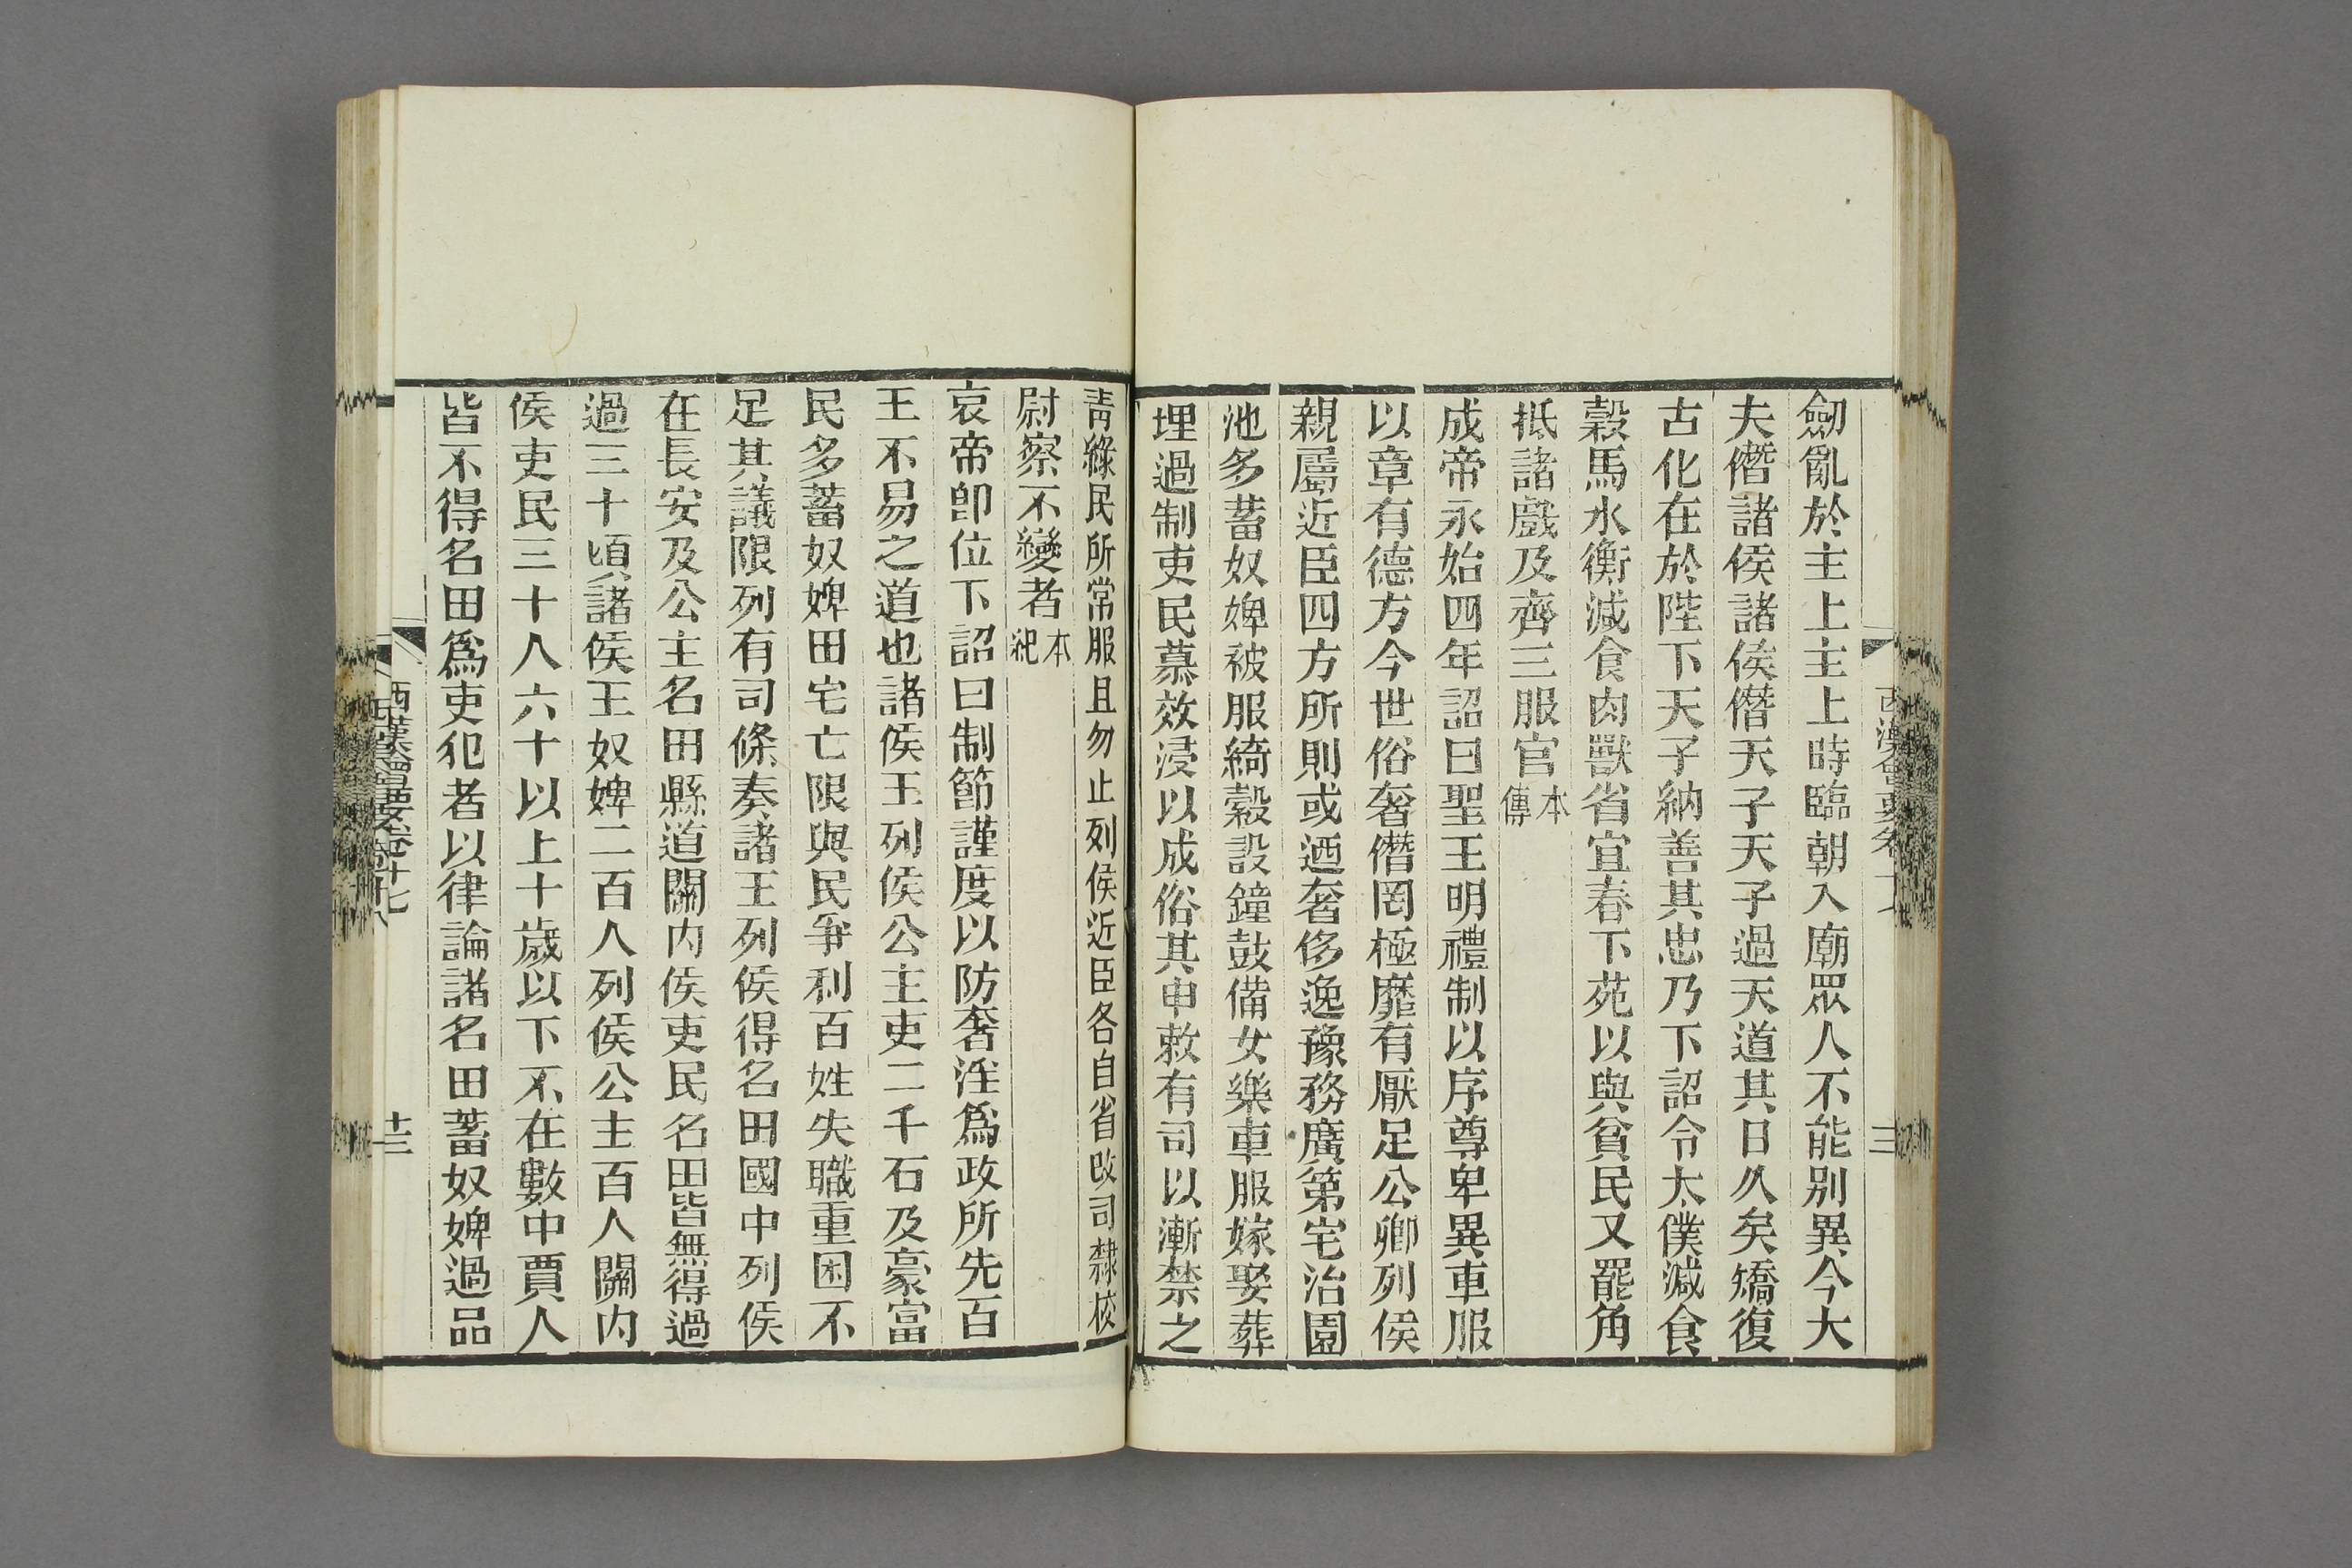 劒亂於主上主上時臨朝入廟眾人不能別異今大
夫僭諸侯諸侯僭天子天子過天道其日久矣矯復
古化在於陛下天子納善其忠乃下詔令太僕減食
穀馬水衡減食肉獸省宜春下苑以與貧民又罷角
抵諸戲及齊三服官本傳
成帝永始四年詔曰聖王明禮制以序尊卑異車服
以章有德方今世俗奢僭罔極靡有厭足公卿列侯
親屬近臣四方所則或迺奢侈逸豫務廣第宅治園
池多蓄奴婢被服綺縠設鐘鼓備女樂車服嫁娶葬
埋過制吏民慕效浸以成俗其申敕有司以漸禁之
青綠民所常服且勿止列侯近臣各自省改司隸校
尉察不變者本紀
哀帝卽位下詔曰制節謹度以防奢淫爲政所先百
王不易之道也諸侯王列侯公主吏二千石及豪富
民多蓄奴婢田宅亡限與民爭利百姓失職重困不
足其議限列有司條奏諸王列侯得名田國中列侯
在長安及公主名田縣道關內侯吏民名田皆無得過
過三十頃諸侯王奴婢二百人列侯公主百人關內
侯吏民三十人六十以上十歲以下不在數中賈人
皆不得名田爲吏犯者以律論諸名田蓄奴婢過品
西漢會要卷十七
十三